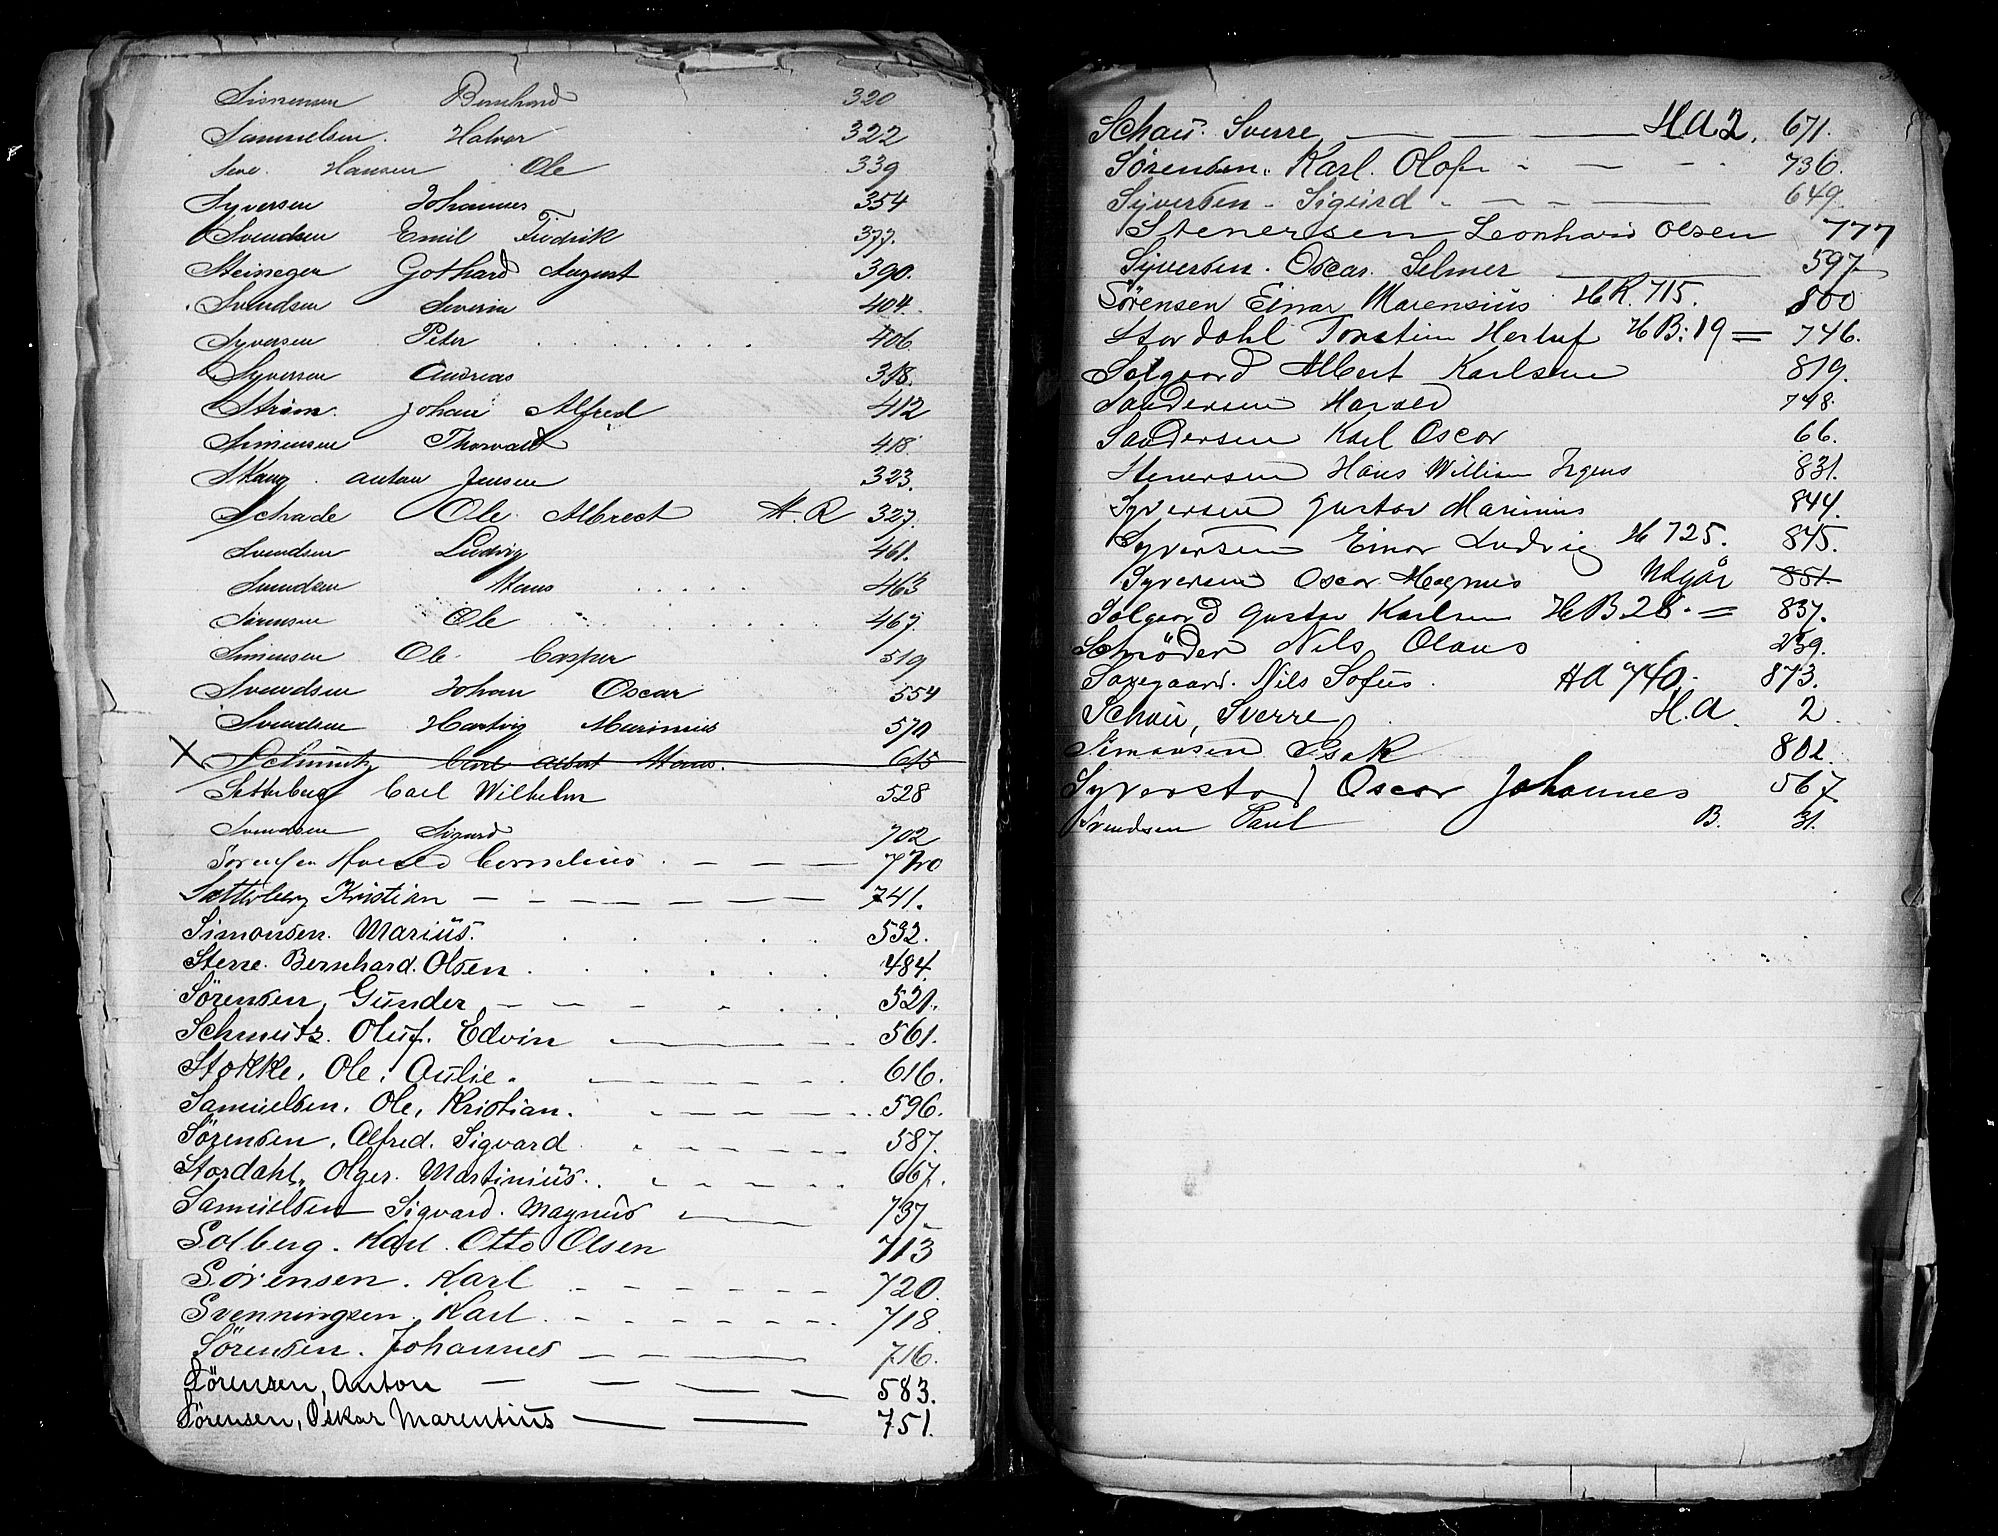 Simensen Bernhard 320
Samuelsen. Halvor 322
Hansen Ole 339
Syversen Johannes 354
Svendsen Emil Fredrik 377.
Steineger Gothard August 390.
Svendsen Severin 404.
Syversen Peter 406.
Syversen Andreas 318.
Strøm. Johan Alfred 412
Simensen Thorvald 418.
Skaug. Anton Jensen 323.
Schade Ole Albrect H. R 327.
Svendsen Ludvig 461.
Svendsen Hans 463
Sørensen Ole 467.
Simensen Ole Casper 519
Svendsen Johan Oscar 554
Svendsen Hartvig Marinius 570
X Schmutz Carl Albert Hans. 615
Sætterberg Carl Wilhelm 528
Svendsen Sigurd 702
Sørensen Harald Cornelius. 770
Sætterberg Kristian 741.
Simonsen. Marius. 532.
Stene. Bernhard. Olsen 484.
Sørensen, Gunder 521.
Schmutz. Oluf. Edvin 561.
Stokke. Ole. Aulie. 616.
Samuelsen. Ole, Kristian. 596.
Sørensen. Alfred. Sigvard 587.
Stordahl, Olger. Martinius. 667.
Samuelsen Sigvard. Magnus 737.
Solberg. Karl. Otto Olsen 713
Sørensen. Karl 720.
Svenningsen. Karl 718.
Sørensen. Johannes 716.
Sørensen, Anton 583.
Sørensen, Oskar Marentius 751.
Schau. Sverre H A 2. 671.
Sørensen. Karl. Olof 736.
Syversen - Sigurd 649.
Stenersen Leonhard Olsen 777
Syversen. Oscar. Selmer 597.
Sørensen Einar Marensius H R. 715. 800
Stordahl Torstein Herluf H B: 19 = 746.
Solgaard Albert Karlsen 819.
Sandersen Harald 748.
Sandersen Karl Oscar 66.
Stenersen Hans William Irgens 831.
Syversen Gustav Marinius 844.
Syversen Einar Ludvig H 725. 845.
Syversen Oscar Magnus Udgår 851.
Solgaard Gustav Karlsen H B 28. = 837.
Schrøder Nils Olaus 239.
Saxegaard. Nils Sofus. H A 740. 873.
Schau, Sverre H. A. 2.
Simonsen Isak 802.
Syverstad Oscar Johannes 567.
Svendsen Paul B. 31.